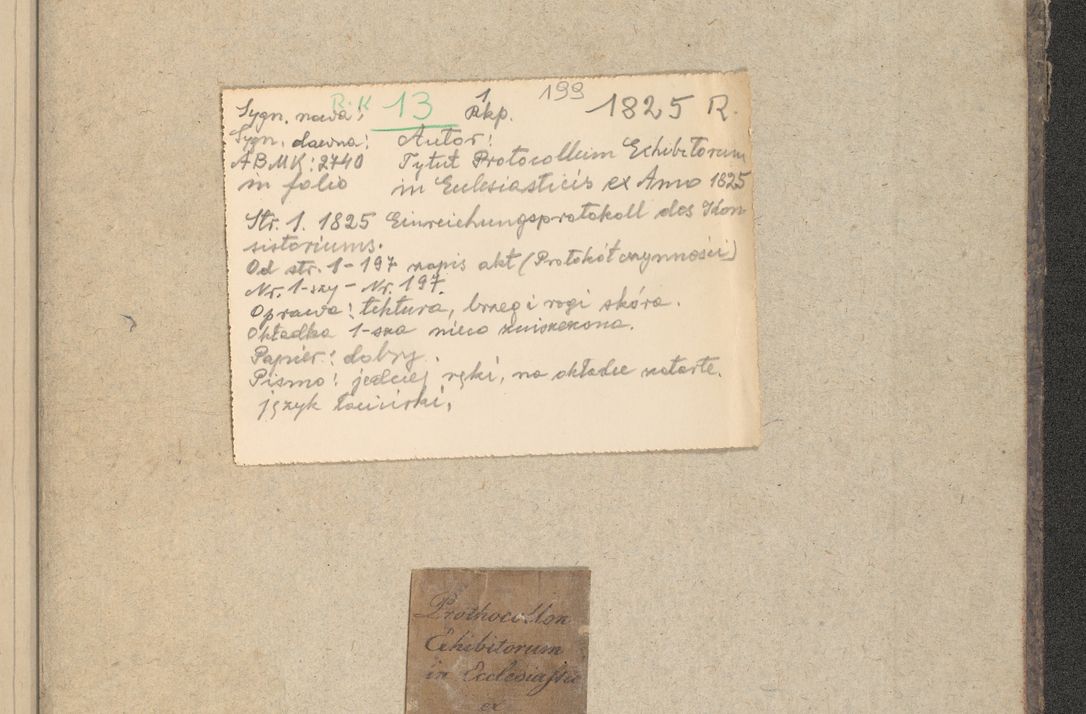 Sygn. nowa: R.K 13 1 Rkp. 199 1825 R.
Sygn. dawna: Autor:
ABMK: 2740 Tytuł Protocollum Exhibitorum
in folio in Ecclesiasticis ex Anno 1825
Str. 1. 1825 Einreichungsprotokoll des Kon
sistoriums.
Od str. 1-197 napis akt (Protokół czynności)
Nr. 1-szy - Nr. 197.
Oprawa: tektura, brzeg i rogi skóra.
Okładka 1-sza nieco zniszczona.
Papier: dobry.
Pismo: jednej ręki, na okładce zatarte.
język łaciński.
Prothocollon
Exhibitorum
in Ecclesiastic
ex